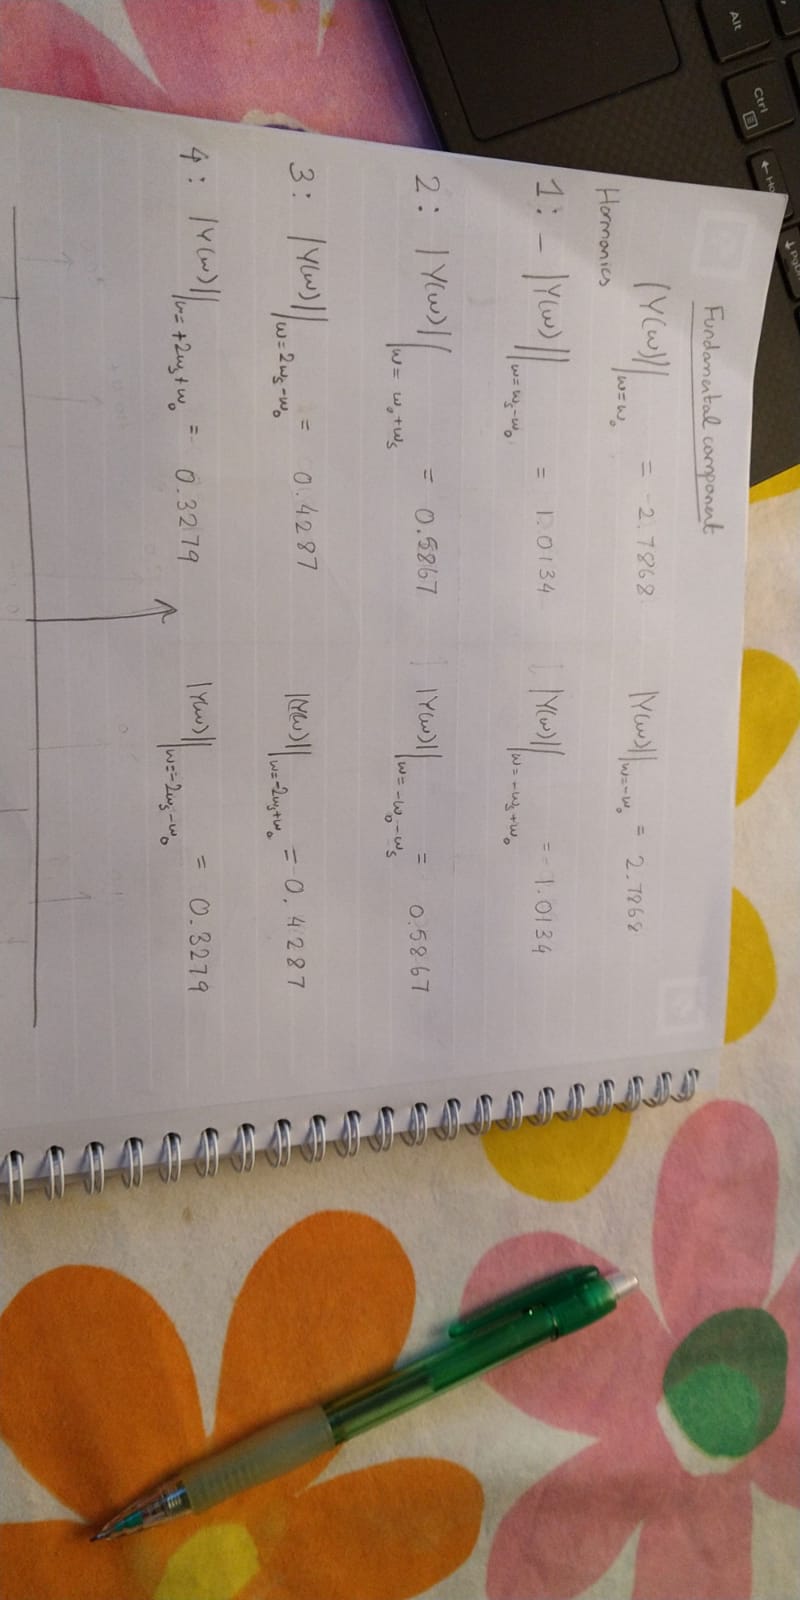 Fundamental component
|Y(ω)||ω=ω₀ = 2.7868 |Y(ω)||ω=-ω₀ = 2.7868
Harmonics
1: - |Y(ω)||ω=ωs-ω₀ = 1.0134 |Y(ω)||ω=-ωs+ω₀ = 1.0134
2: |Y(ω)||ω=ω₀+ωs = 0.5867 |Y(ω)||ω=-ω₀-ωs = 0.5867
3: |Y(ω)||ω=2ωs-ω₀ = 0.4287 |Y(ω)||ω=-2ωs+ω₀ = 0.4287
4: |Y(ω)||ω=+2ωs+ω₀ = 0.3279 |Y(ω)||ω=-2ωs-ω₀ = 0.3279
Alt
Ctrl